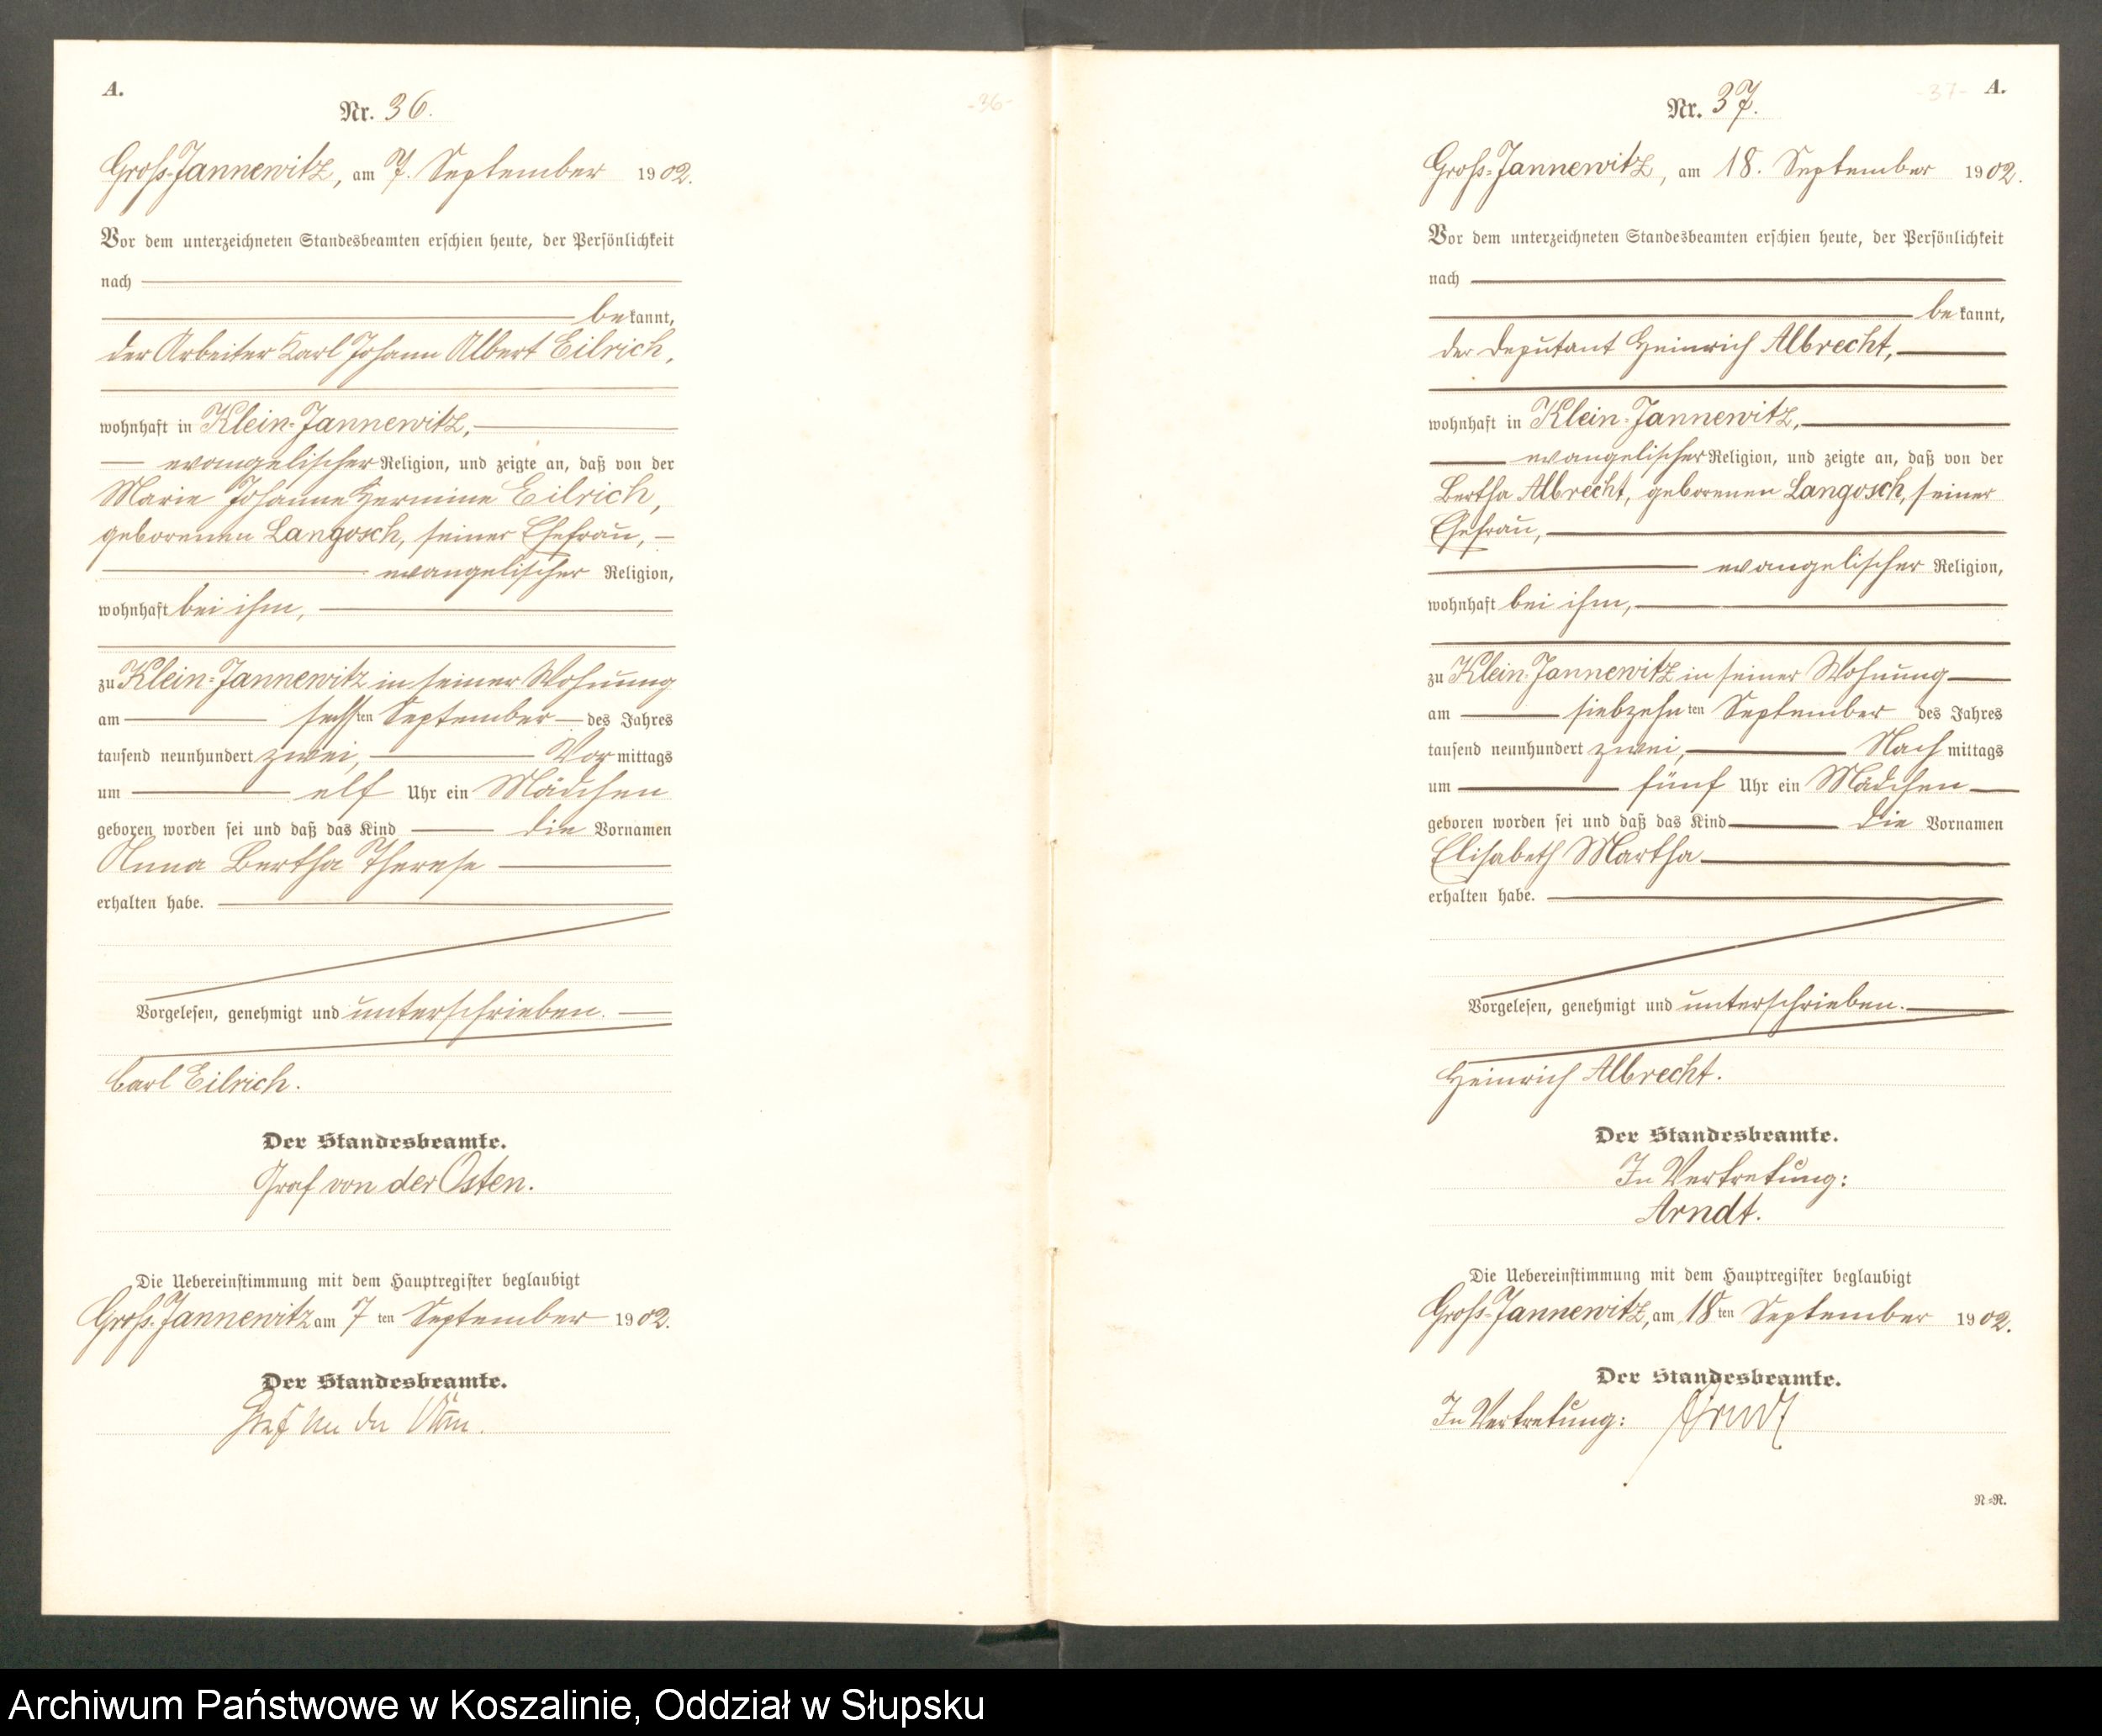 A.
Nr. 36.
-36-
Groß-Jannewitz, am 7. September 1902.
Vor dem unterzeichneten Standesbeamten erschien heute, der Persönlichkeit
nach
bekannt,
der Arbeiter Karl Johann Albert Eilrich,
wohnhaft in Klein-Jannewitz,
evangelischer Religion, und zeigte an, daß von der
Marie Johanne Hermine Eilrich,
geborenen Langosch, seiner Ehefrau,
evangelischer Religion,
wohnhaft bei ihm,
zu Klein-Jannewitz in seiner Wohnung
am sechsten September des Jahres
tausend neunhundert zwei, Vormittags
um elf Uhr ein Mädchen
geboren worden sei und daß das Kind die Vornamen
Anna Bertha Therese
erhalten habe.
Vorgelesen, genehmigt und unterschrieben.
Carl Eilrich.
Der Standesbeamte.
Graf von der Osten.
Die Uebereinstimmung mit dem Hauptregister beglaubigt
Groß-Jannewitz am 7ten September 1902.
Der Standesbeamte.
Graf von der Osten.
-37-
A.
Nr. 37.
Groß-Jannewitz, am 18. September 1902.
Vor dem unterzeichneten Standesbeamten erschien heute, der Persönlichkeit
nach
bekannt,
der Deputant Heinrich Albrecht,
wohnhaft in Klein-Jannewitz,
evangelischer Religion, und zeigte an, daß von der
Bertha Albrecht, geborenen Langosch, seiner
Ehefrau,
evangelischer Religion,
wohnhaft bei ihm,
zu Klein-Jannewitz in seiner Wohnung
am siebzehnten September des Jahres
tausend neunhundert zwei, Nachmittags
um fünf Uhr ein Mädchen
geboren worden sei und daß das Kind die Vornamen
Elisabeth Martha
erhalten habe.
Vorgelesen, genehmigt und unterschrieben.
Heinrich Albrecht.
Der Standesbeamte.
In Vertretung:
Arndt.
Die Uebereinstimmung mit dem Hauptregister beglaubigt
Groß-Jannewitz, am 18ten September 1902.
Der Standesbeamte.
In Vertretung: Arndt
N=R.
Archiwum Państwowe w Koszalinie, Oddział w Słupsku